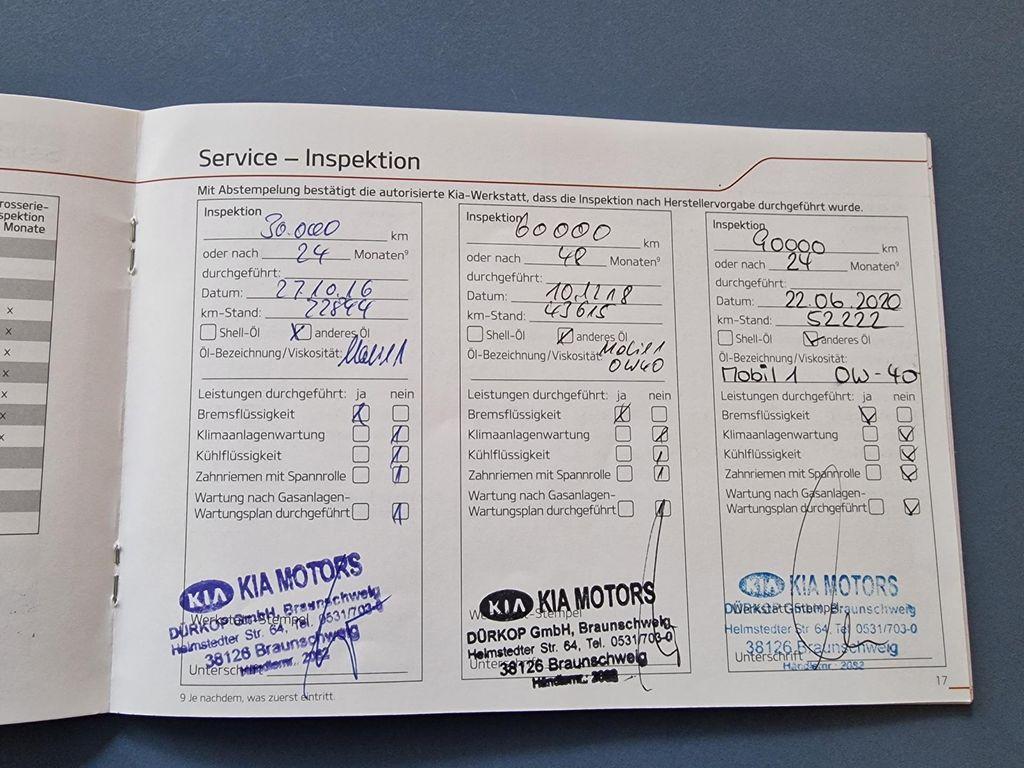 rosserie-
spektion
Monate
x
x
x
x
x
x
x
Service – Inspektion
Mit Abstempelung bestätigt die autorisierte Kia-Werkstatt, dass die Inspektion nach Herstellervorgabe durchgeführt wurde.
Inspektion
30.000 km
oder nach 24 Monaten⁹
durchgeführt:
Datum: 27.10.16
km-Stand: 22844
Shell-Öl X anderes Öl
Öl-Bezeichnung/Viskosität:
Leistungen durchgeführt: ja nein
Bremsflüssigkeit
Klimaanlagenwartung
Kühlflüssigkeit
Zahnriemen mit Spannrolle
Wartung nach Gasanlagen-
Wartungsplan durchgeführt
KIA KIA MOTORS
DÜRKOP GmbH, Braunschweig
Helmstedter Str. 64, Tel. 0531/703-0
38126 Braunschweig
Händlernr.: 2082
Inspektion
60000 km
oder nach 48 Monaten⁹
durchgeführt:
Datum: 10.12.18
km-Stand: 43615
Shell-Öl anderes Öl
Öl-Bezeichnung/Viskosität: Mobil 1
0W40
Leistungen durchgeführt: ja nein
Bremsflüssigkeit
Klimaanlagenwartung
Kühlflüssigkeit
Zahnriemen mit Spannrolle
Wartung nach Gasanlagen-
Wartungsplan durchgeführt
KIA KIA MOTORS
DÜRKOP GmbH, Braunschweig
Helmstedter Str. 64, Tel. 0531/703-0
38126 Braunschweig
Händlernr.: 2082
Inspektion
90000 km
oder nach 24 Monaten⁹
durchgeführt:
Datum: 22.06.2020
km-Stand: 52222
Shell-Öl anderes Öl
Öl-Bezeichnung/Viskosität:
Mobil 1 0W-40
Leistungen durchgeführt: ja nein
Bremsflüssigkeit
Klimaanlagenwartung
Kühlflüssigkeit
Zahnriemen mit Spannrolle
Wartung nach Gasanlagen-
Wartungsplan durchgeführt
KIA KIA MOTORS
DÜRKOP GmbH, Braunschweig
Helmstedter Str. 64, Tel. 0531/703-0
38126 Braunschweig
Unterschrift
Händlernr.: 2082
9 Je nachdem, was zuerst eintritt.
17